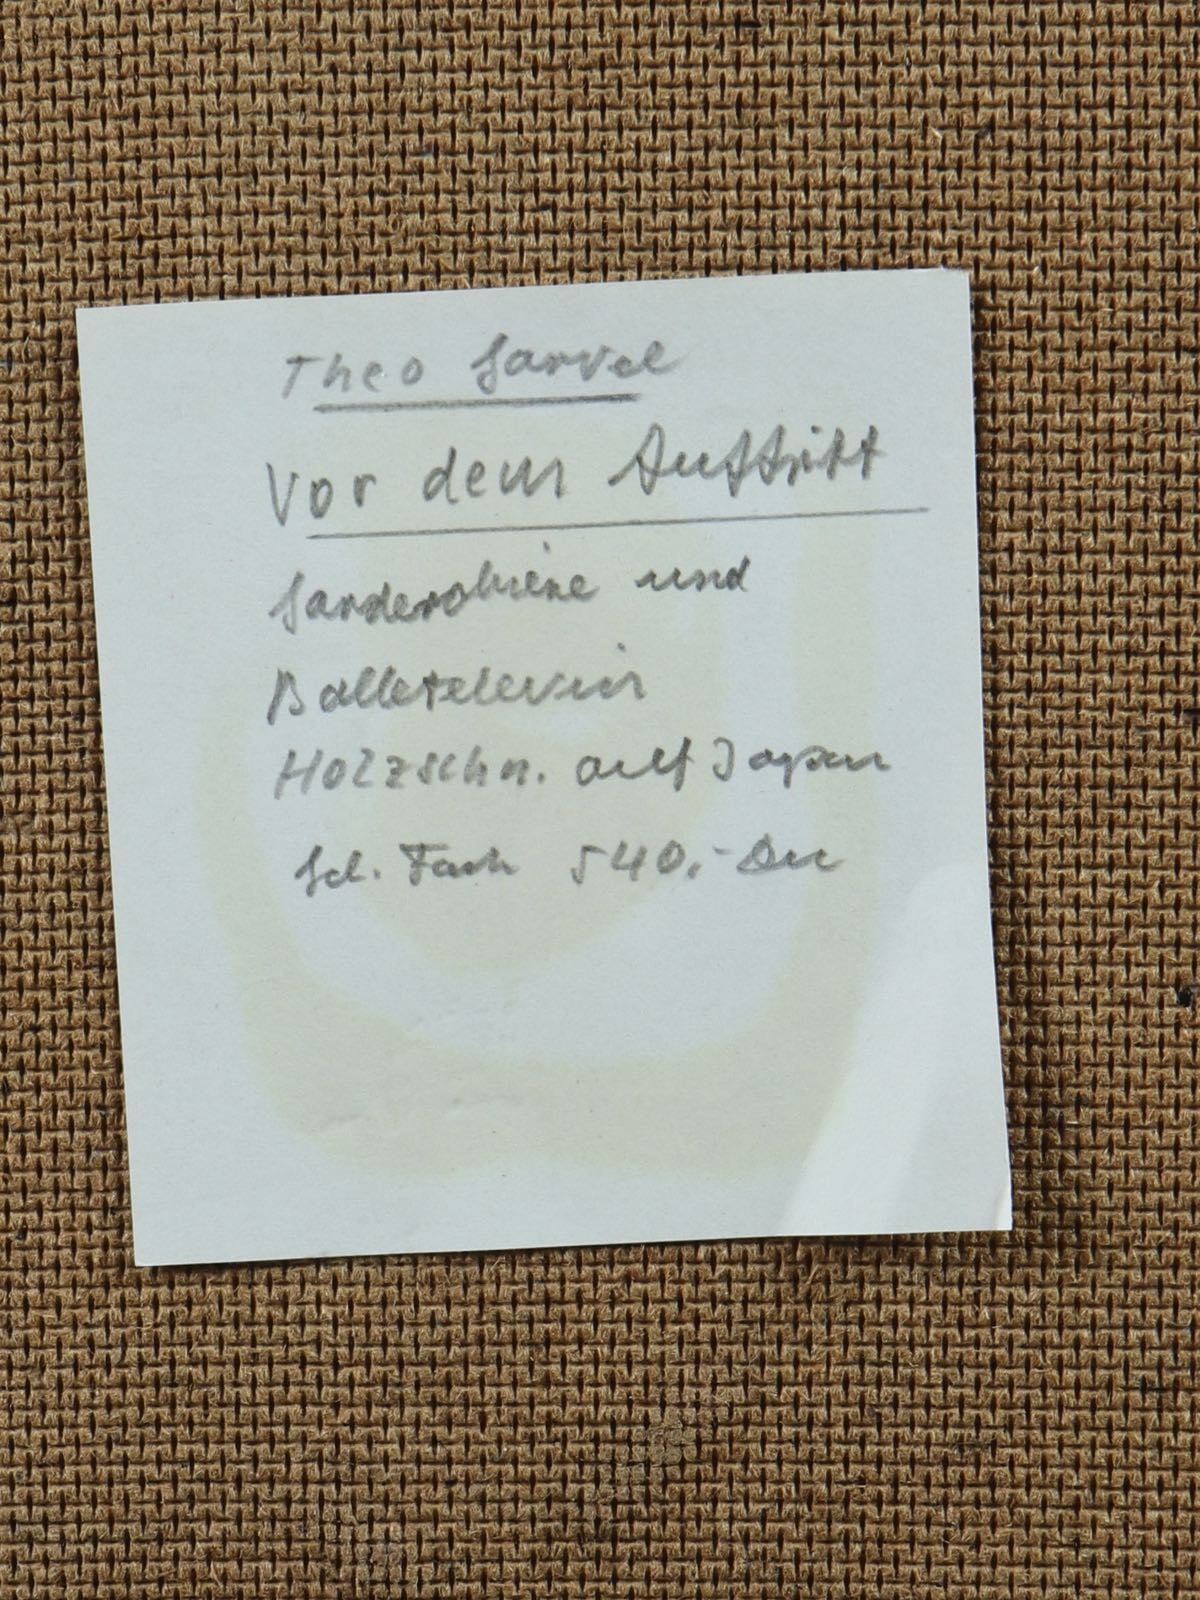 Theo Garvel
Vor dem Auftritt
Garderobiere und
Balletelevin
Holzschn. auf Japan
Gel. Fach 540,- DM